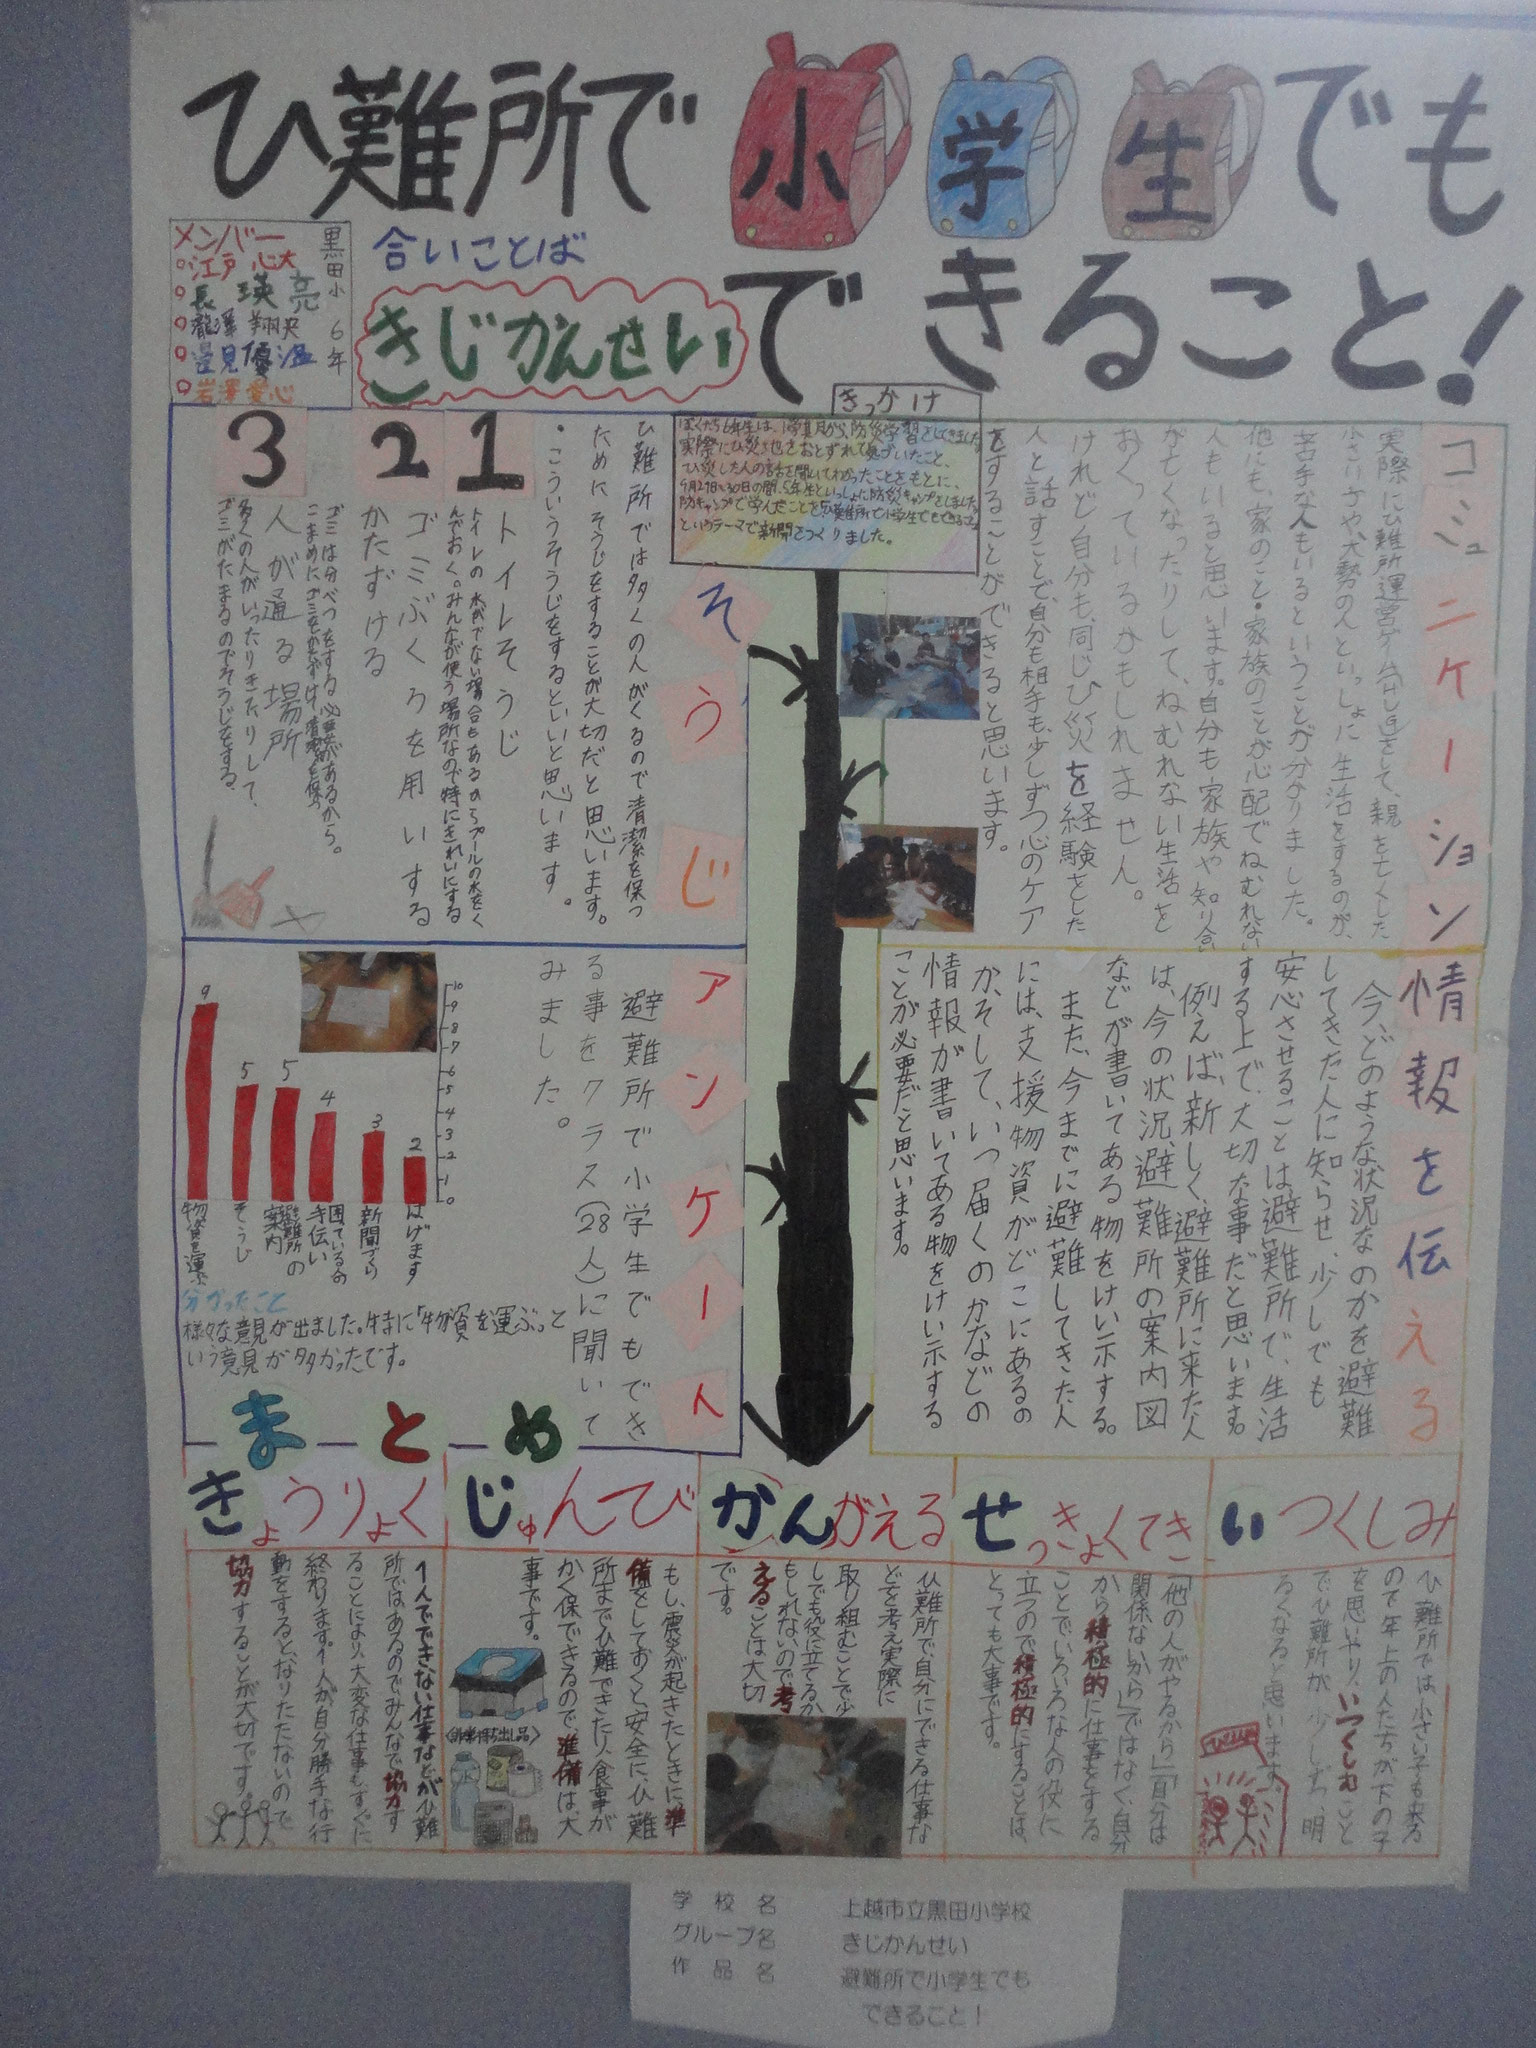 ひ難所で小学生でも
できること!
合いことば
きじかんせい
黒田小 6年
メンバー
江戸 心大
長 瑛亮
瀧澤 翔央
邉見優温
岩澤愛心
きっかけ
というテーマで新聞をつくりました。
コミュニケーション
実際にひ難所運営ゲーム
をして、親を亡くした
小さい子や、大勢の人といっしょに生活をするのが、
苦手な人もいるということが分かりました。
他にも、家のこと・家族のことが心配でねむれない
人もいると思います。自分も家族や知り合い
が亡くなったりして、ねむれない生活を
おくっているかもしれません。
けれど自分も、同じひ災を経験をした
人と話すことで、自分も相手も、少しずつ心のケア
をすることができると思います。
情報を伝える
今、どのような状況なのかを避難
してきた人に知らせ、少しでも
安心させることは、避難所で、生活
する上で、大切な事だと思います。
例えば、新しく、避難所に来た人
は、今の状況、避難所の案内図
などが書いてある物をけい示する。
また、今までに避難してきた人
には、支援物資がどこにあるの
か、そして、いつ届くのかなどの
情報が書いてある物をけい示する
ことが必要だと思います。
そうじ
ひ難所では多くの人がくるので清潔を保つ
ためにそうじをすることが大切だと思います。
・こういうそうじをするといいと思います。
1
トイレそうじ
トイレの水がでない場合もあるからプールの水をく
んでおく。みんなが使う場所なので特にきれいにする
2
ゴミぶくろを用いする
かたずける
ゴミは分べつをする必要があるから。
こまめにゴミをかたずけ、清潔を保つ
3
人が通る場所
多くの人がいったりきたりして、
ゴミがたまるのでそうじをする。
アンケート
避難所で小学生でもでき
る事をクラス(28人)に聞いて
みました。
10
9
8
7
6
5
4
3
2
1
0
9
5
5
4
3
2
物資を運ぶ
そうじ
避難所の案内
困っている人の手伝い
新聞づくり
はげます
分かったこと
様々な意見が出ました。特に「物資を運ぶ」と
いう意見が多かったです。
まとめ
きょうりょく
1人でできない仕事などがひ難
所ではあるのでみんなで協力す
ることにより、大変な仕事もすぐに
終わります。1人が自分勝手な行
動をすると、なりたたないので
協力することが大切です。
じゅんび
もし、震災が起きたときに、準
備をしておくと、安全に、ひ難
所までひ難できたり、食事が
かく保できるので、準備は、大
事です。
〈非常持ち出し品〉
かんがえる
ひ難所で、自分にできる仕事な
どを考え実際に
取り組むことで少
しでも役に立てるか
もしれないので考
えることは大切
です。
せっきょくてき
「他の人がやるから」「自分は
関係ないから」ではなく、自分
から積極的に仕事をする
ことでいろいろな人の役に
立つので積極的にすることは、
とっても大事です。
いつくしみ
ひ難所では小さい子も来る
ので年上の人たちが下の子
を思いやり、いつくしむこと
でひ難所が少しずつ明
るくなると思います。
学校名 上越市立黒田小学校
グループ名 きじかんせい
作品名 避難所で小学生でも
できること!